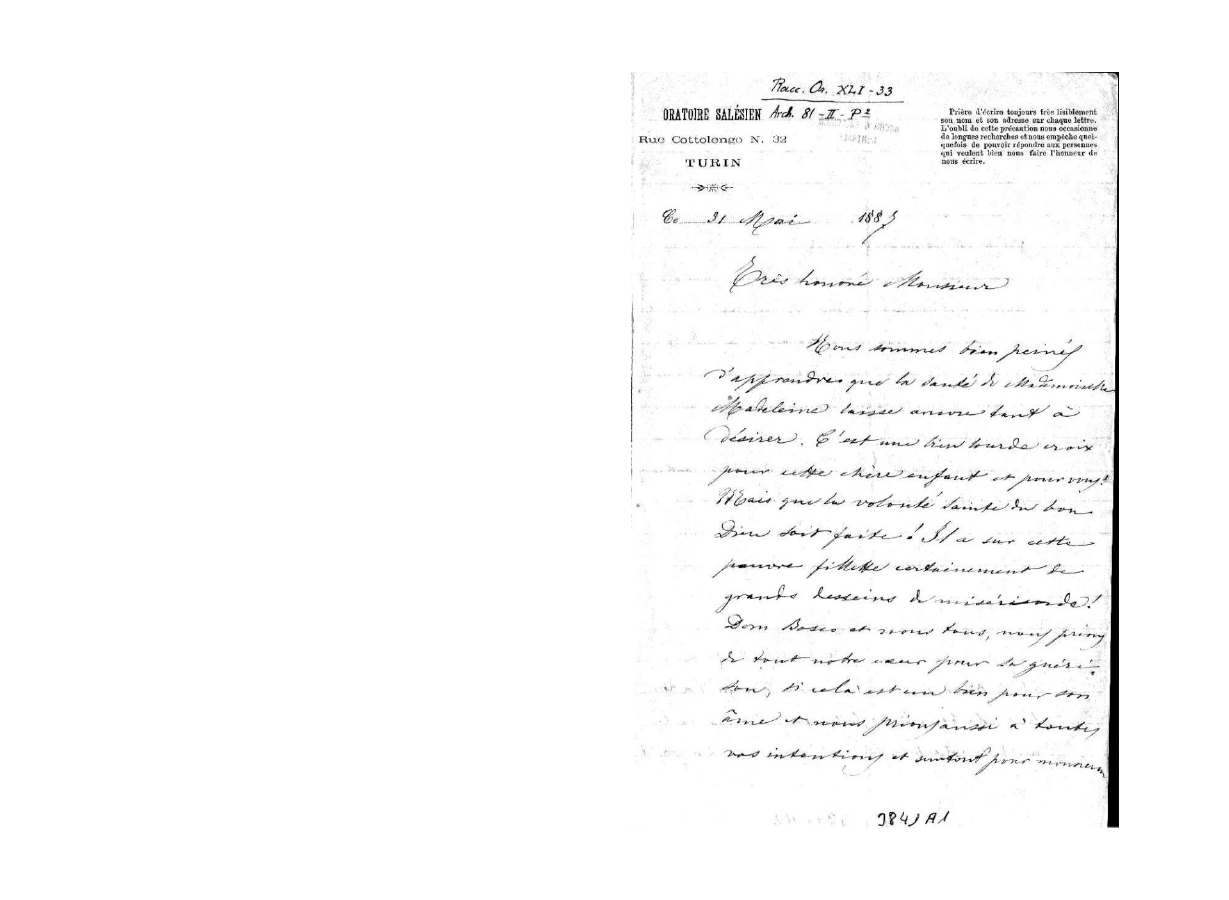 Racc. Or. XLI - 33
ORATOIRE SALÉSIEN Arch. 81 - II - P²
Rue Cottolengo N. 32
TURIN
Prière d'écrire toujours très lisiblement
son nom et son adresse sur chaque lettre.
L'oubli de cette précaution nous occasionne
de longues recherches et nous empêche quel-
quefois de pouvoir répondre aux personnes
qui veulent bien nous faire l'honneur de
nous écrire.
Ce 31 Mai 1885
Très honoré Monsieur
Nous sommes bien peinés
d'apprendre que la santé de Mademoiselle
Madeleine laisse encore tant à
désirer. C'est une bien lourde croix
pour cette chère enfant et pour vous!
Mais que la volonté sainte du bon
Dieu soit faite! Il a sur cette
pauvre fillette certainement de
grands desseins de miséricorde!
Dom Bosco et nous tous, nous prions
de tout notre cœur pour sa guéri-
son, si cela est un bien pour son
âme et nous prions aussi à toutes
vos intentions et surtout pour monsieur